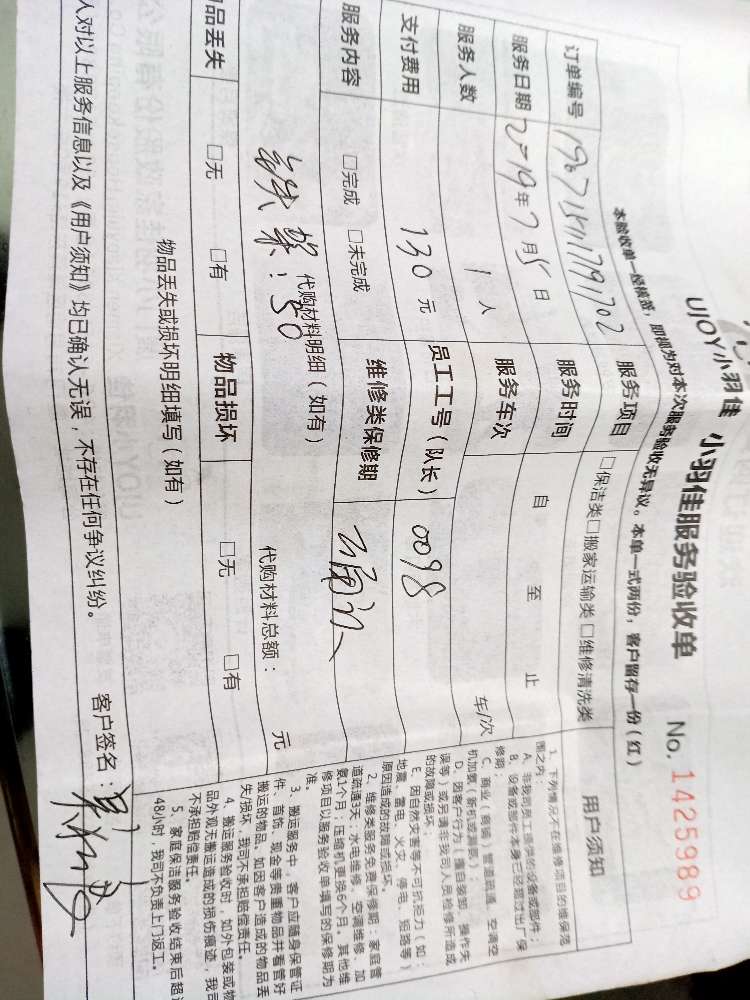 UJOY小羽佳 小羽佳服务验收单 No. 1425989
本验收单一经核签，即视为对本次服务验收无异议。本单一式两份，客户留存一份（红）
订单编号 服务项目 □保洁类□搬家运输类□维修清洗类
服务日期 2019年7月5日 服务时间 自 至 止
服务人数 1人 服务车次 车/次
支付费用 130元 员工工号（队长） 0098
服务内容 □完成 □未完成 维修类保修期
代购材料明细（如有）
铁架：50 代购材料总额： 元
品丢失 □无 □有 物品损坏 □无 □有
物品丢失或损坏明细填写（如有）
人对以上服务信息以及《用户须知》均已确认无误，不存在任何争议纠纷。 客户签名：
用户须知
1、下列情况不在维修项目的维保范
围之内：
A、非我司员工提供的设备或部件；
B、设备或部件本身已经超过出厂保
修期；
C、商业（商铺）管道疏通、空调空
机加氨（新机或漏氨）；
D、因客户行为（擅自装卸、操作失
误等）或另请非我司人员检修所造成
的故障或损坏；
E、因自然灾害等不可抗拒力（如：
地震、雷电、火灾、停电、短路等）
原因造成的故障或损坏。
2、维修类服务免费保修期：家庭管
道疏通3天；水电维修、空调维修、加
氨1个月；压缩机更换6个月。其他维
修项目以服务验收单填写的保修期为
准。
3、搬运服务中，客户应随身保管证
件、首饰、现金等贵重物品并看管好
搬运的物品。如因客户造成的物品丢
失/损坏，我司不承担赔偿责任。
4、搬运服务验收时，如外包装或物
品外观无搬运造成的损伤痕迹，我司
不承担赔偿责任。
5、家庭保洁服务验收结束后超过
48小时，我司不负责上门返工。